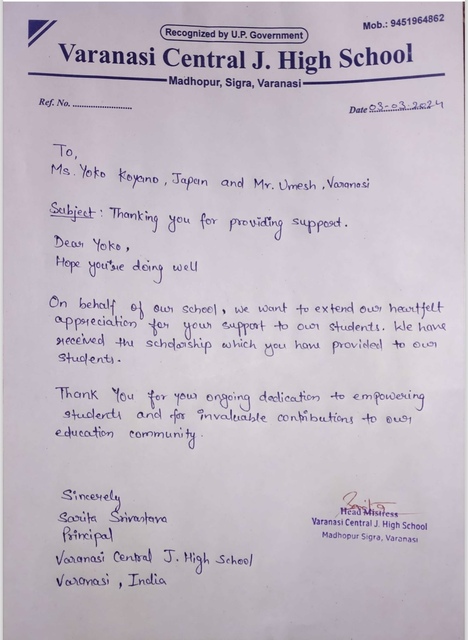 Recognized by U.P. Government
Mob.: 9451964862
Varanasi Central J. High School
Madhopur, Sigra, Varanasi
Ref. No. ....................
Date 03-03-2024
To,
Ms. Yoko Koyano, Japan and Mr. Umesh, Varanasi
Subject: Thanking you for providing support.
Dear Yoko,
Hope you're doing well
On behalf of our school, we want to extend our heartfelt
appreciation for your support to our students. We have
received the scholarship which you have provided to our
students.
Thank You for your ongoing dedication to empowering
students and for invaluable contributions to our
education community.
Sincerely
Sarita Srivastava
Principal
Varanasi Central J. High School
Varanasi, India
Sarita
Head Mistress
Varanasi Central J. High School
Madhopur Sigra, Varanasi